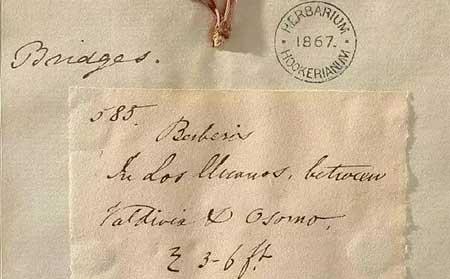 HERBARIUM HOOKERIANUM
1867.
Bridges.
585.
Berberis
In Los
between
Valdivia & Osorno,
3-6 ft.